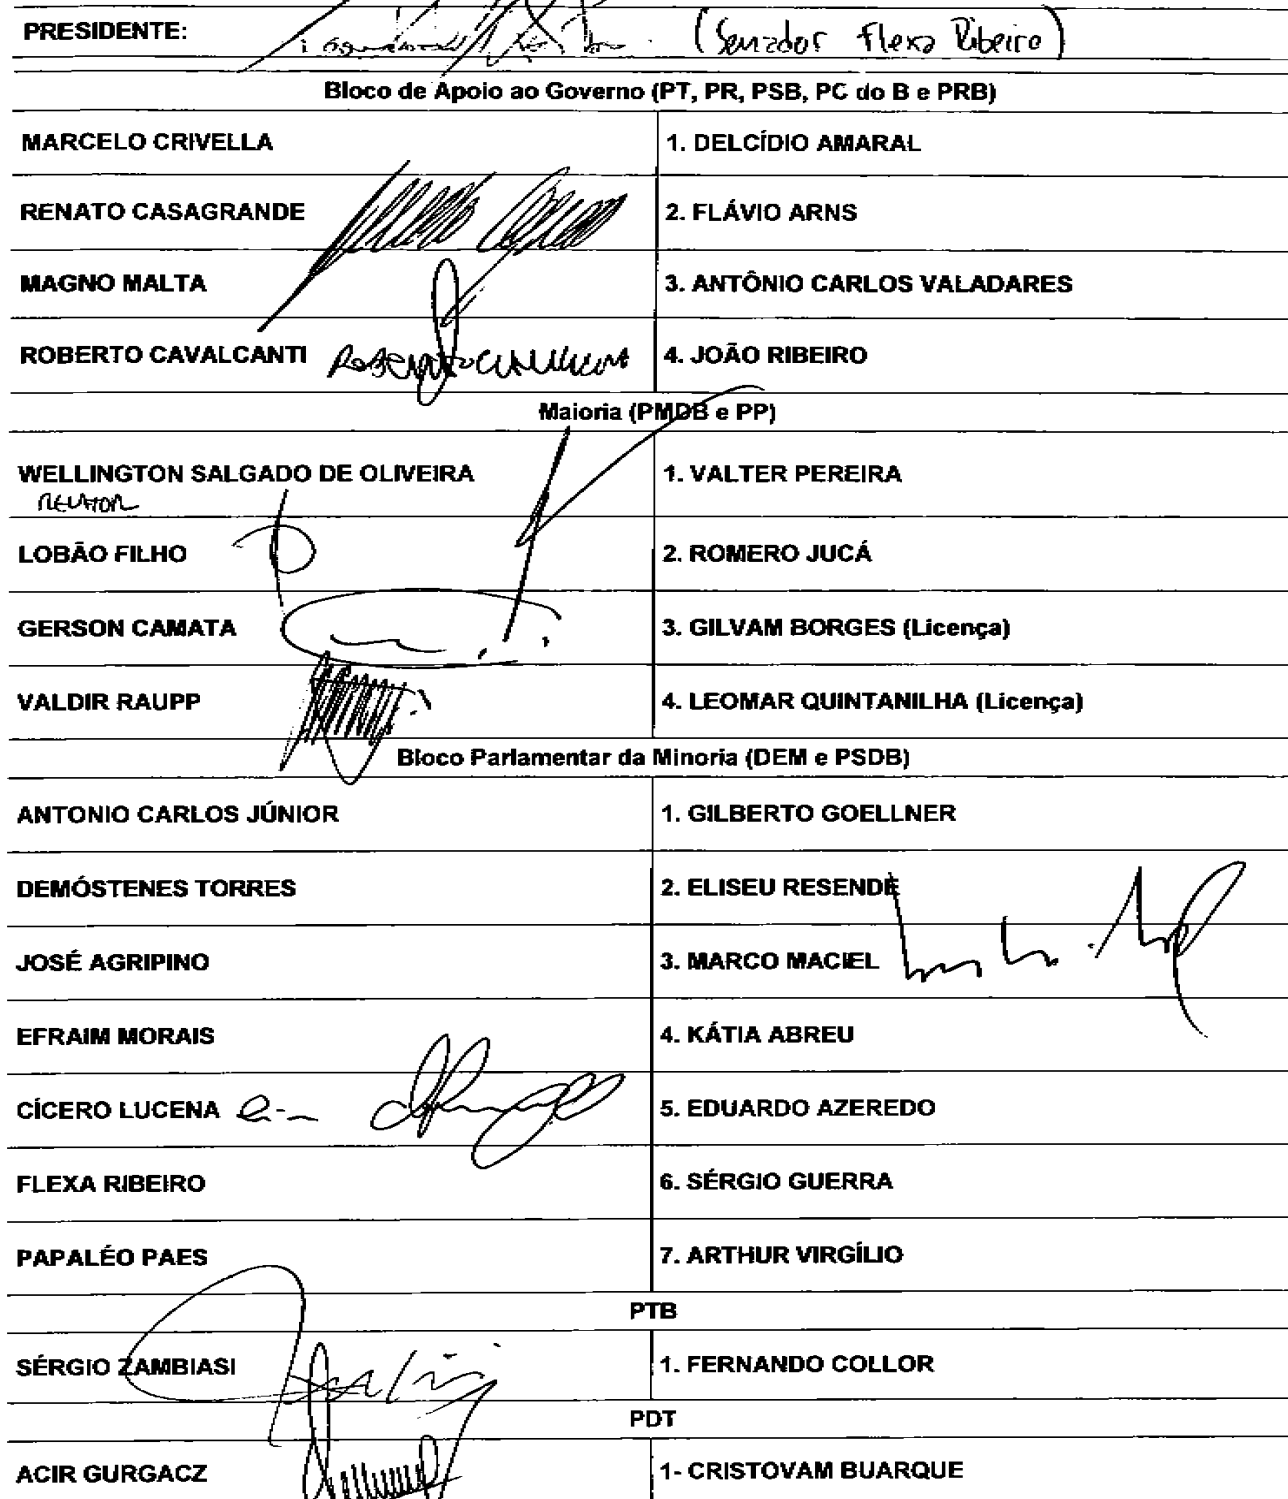 PRESIDENTE: (Senador Flexa Ribeiro)
Bloco de Apoio ao Governo (PT, PR, PSB, PC do B e PRB)
MARCELO CRIVELLA 1. DELCÍDIO AMARAL
RENATO CASAGRANDE 2. FLÁVIO ARNS
MAGNO MALTA 3. ANTÔNIO CARLOS VALADARES
ROBERTO CAVALCANTI 4. JOÃO RIBEIRO
Maioria (PMDB e PP)
WELLINGTON SALGADO DE OLIVEIRA 1. VALTER PEREIRA
RELATOR
LOBÃO FILHO 2. ROMERO JUCÁ
GERSON CAMATA 3. GILVAM BORGES (Licença)
VALDIR RAUPP 4. LEOMAR QUINTANILHA (Licença)
Bloco Parlamentar da Minoria (DEM e PSDB)
ANTONIO CARLOS JÚNIOR 1. GILBERTO GOELLNER
DEMÓSTENES TORRES 2. ELISEU RESENDE
JOSÉ AGRIPINO 3. MARCO MACIEL
EFRAIM MORAIS 4. KÁTIA ABREU
CÍCERO LUCENA 5. EDUARDO AZEREDO
FLEXA RIBEIRO 6. SÉRGIO GUERRA
PAPALÉO PAES 7. ARTHUR VIRGÍLIO
PTB
SÉRGIO ZAMBIASI 1. FERNANDO COLLOR
PDT
ACIR GURGACZ 1- CRISTOVAM BUARQUE